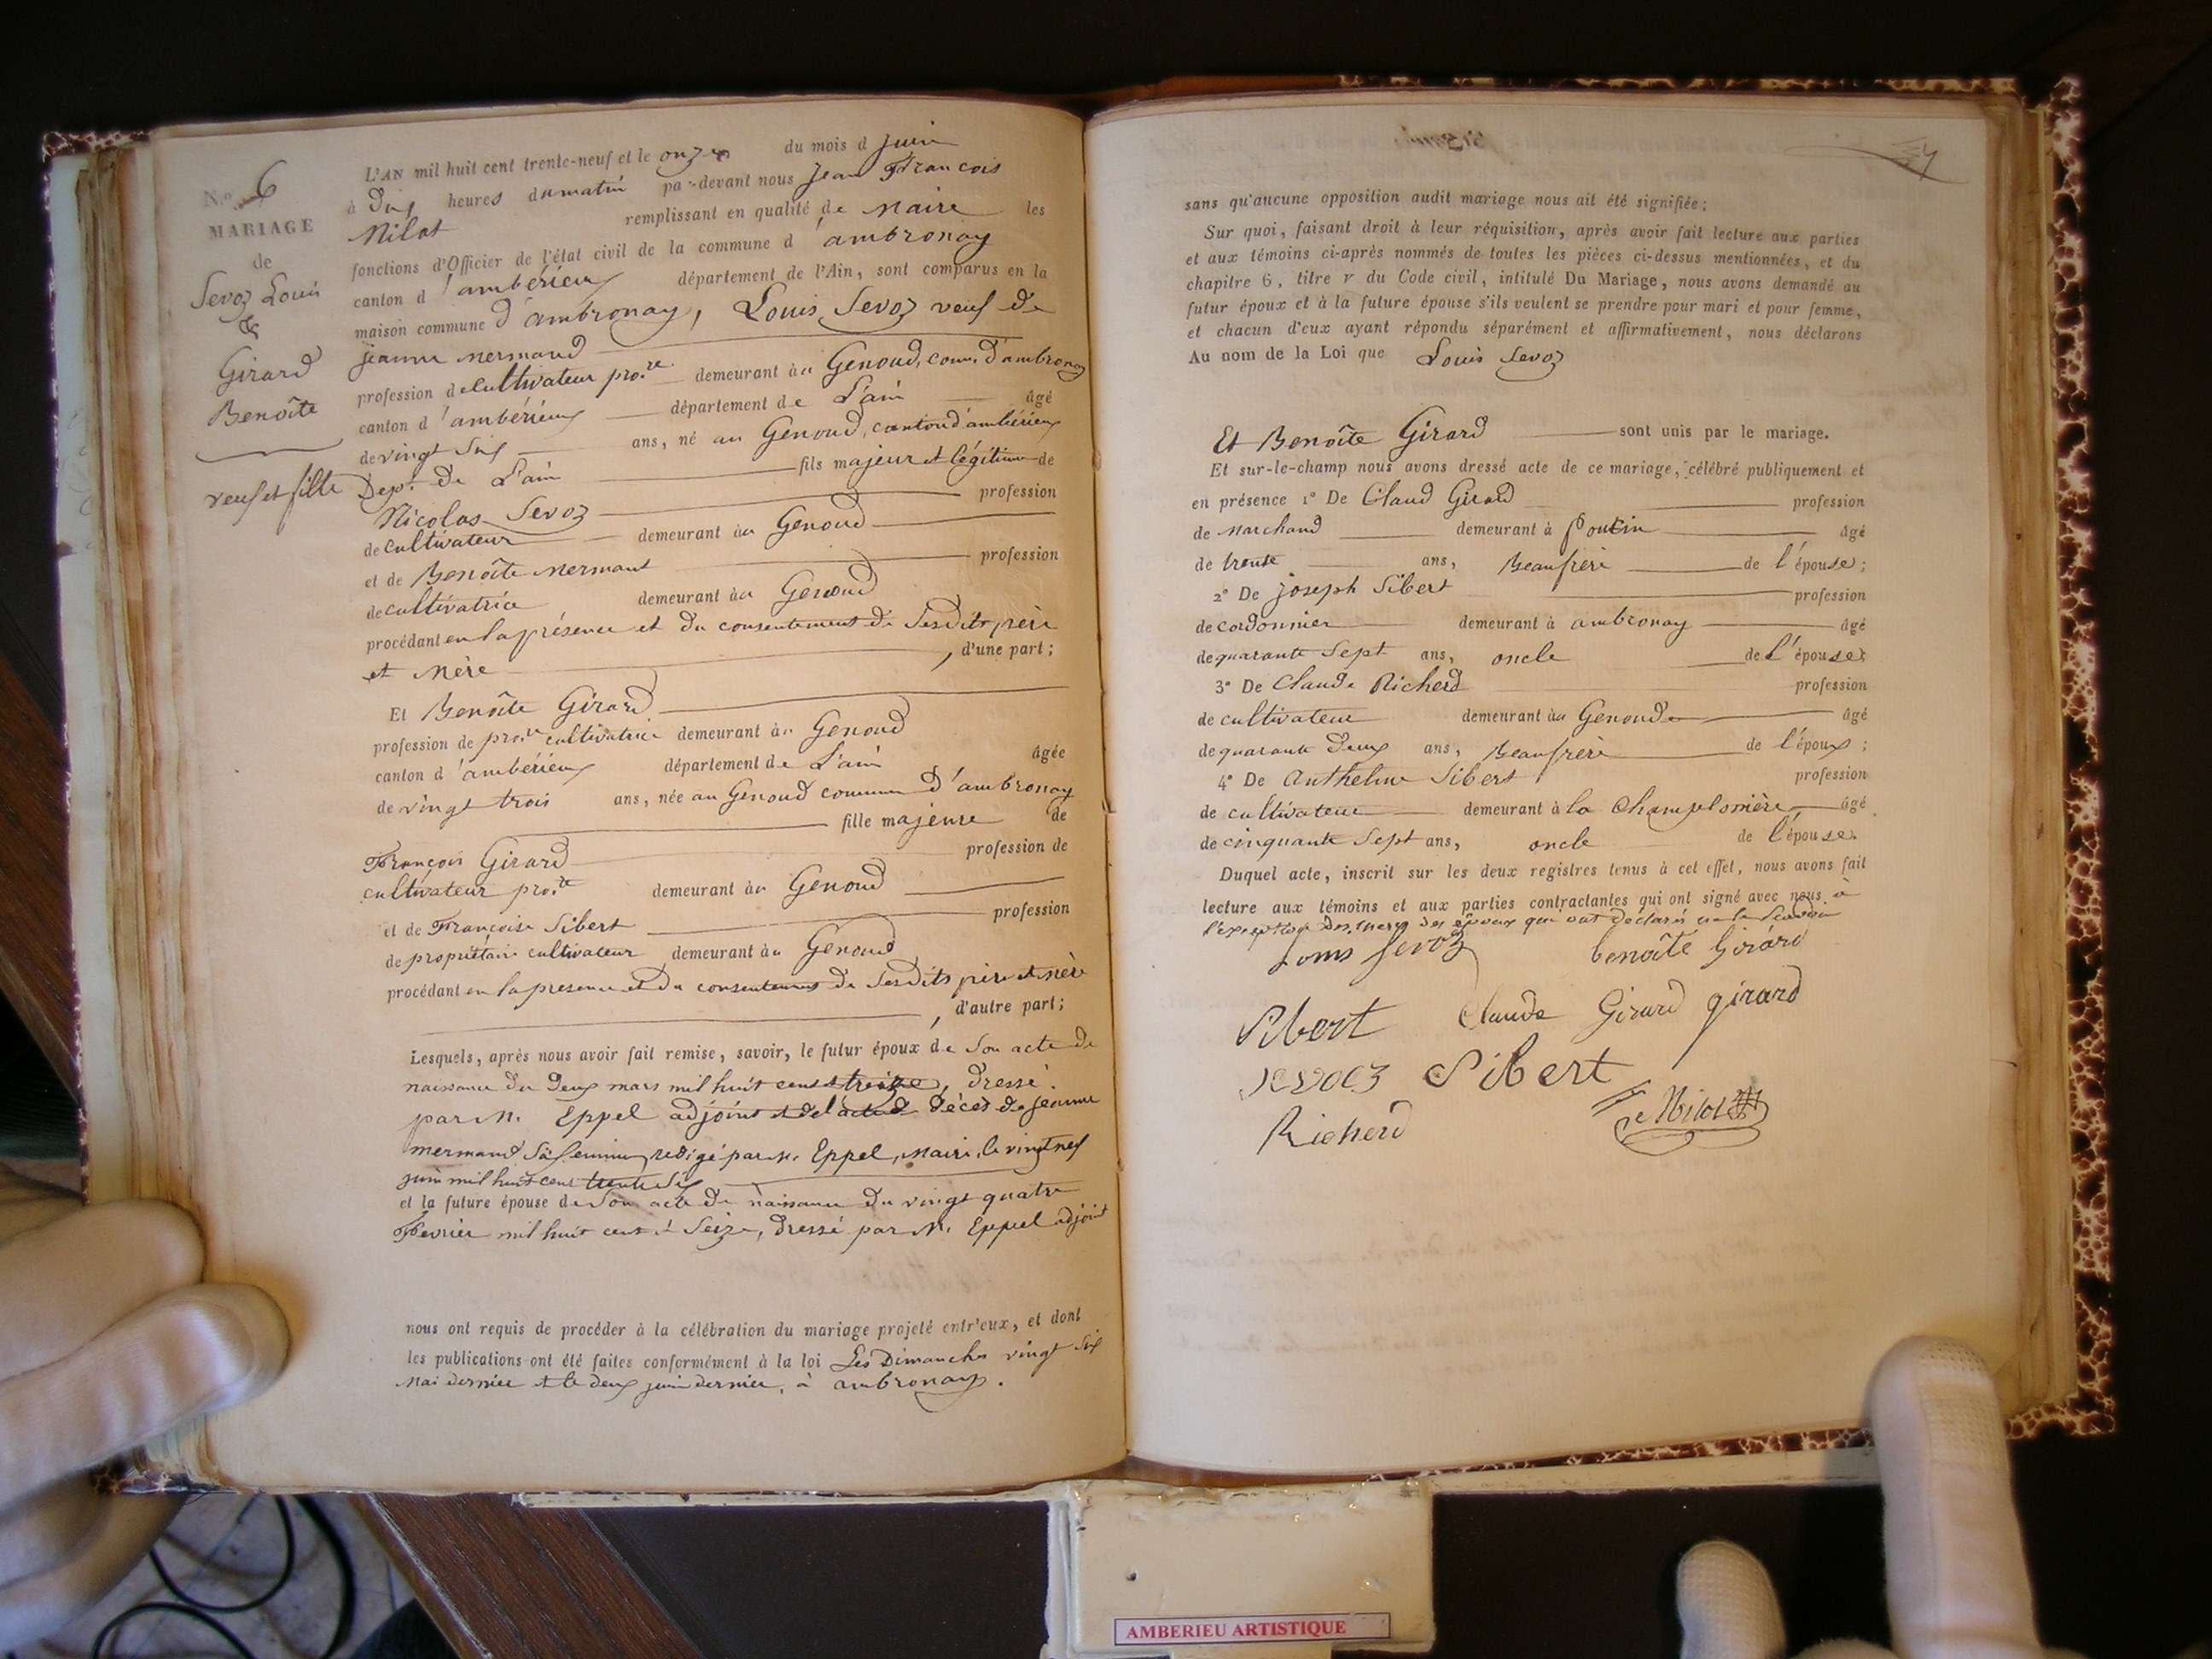 N.º 6
MARIAGE
de
Sevoz Louis
&
Girard
Benoîte
veuf et fille
L'AN mil huit cent trente-neuf et le onze du mois d juin
à dix heures du matin par-devant nous jean François
Milot remplissant en qualité de Maire les
fonctions d'Officier de l'état civil de la commune d'ambronay
canton d'ambérieux département de l'Ain, sont comparus en la
maison commune d'ambronay, Louis Sevoz veuf de
jeanne mermand
profession de cultivateur pro.re demeurant au Genoud, com. d'ambronay
canton d'ambérieux département de L'ain âgé
de vingt Six ans, né au Genoud, canton d'ambérieux
Dep.t de L'ain fils majeur et légitime de
Nicolas Sevoz profession
de cultivateur demeurant au Genoud
et de Benoîte mermant profession
de cultivatrice demeurant au Genoud
procédant en la présence et du consentement de Sesdits père
et Mère, d'une part;
Et Benoîte Girard
profession de pro.re cultivatrice demeurant au Genoud
canton d'ambérieux département de L'ain âgée
de vingt trois ans, née au Genoud commune d'ambronay
fille majeure de
François Girard profession de
cultivateur pro.re demeurant au Genoud
et de Françoise Sibert profession
de propriétaire cultivateur demeurant au Genoud
procédant en la presence et du consentement de Sesdits père et mère
, d'autre part;
Lesquels, après nous avoir fait remise, savoir, le futur époux de Son acte de
naissance du deux mars mil huit cent treize, dressé
par M. Eppel adjoint et de l'acte de décès de jeanne
mermand Sa femme, redigé par M. Eppel, Maire, le vingt neuf
juin mil huit cent trente Six
et la future épouse de Son acte de naissance du vingt quatre
Fevrier mil huit cent Seize, dressé par M. Eppel adjoint
nous ont requis de procéder à la célébration du mariage projeté entr'eux, et dont
les publications ont été faites conformément à la loi Les Dimanches vingt Six
Mai dernier et le deux juin dernier, à ambronay.
7
sans qu'aucune opposition audit mariage nous ait été signifiée;
Sur quoi, faisant droit à leur réquisition, après avoir fait lecture aux parties
et aux témoins ci-après nommés de toutes les pièces ci-dessus mentionnées, et du
chapitre 6, titre V du Code civil, intitulé Du Mariage, nous avons demandé au
futur époux et à la future épouse s'ils veulent se prendre pour mari et pour femme,
et chacun d'eux ayant répondu séparément et affirmativement, nous déclarons
Au nom de la Loi que Louis Sevoz
Et Benoîte Girard sont unis par le mariage.
Et sur-le-champ nous avons dressé acte de ce mariage, célébré publiquement et
en présence 1º De Claud Girard profession
de Marchand demeurant à Poncin âgé
de trente ans, Beaufrère de l'épouse;
2º De joseph Sibert profession
de cordonnier demeurant à ambronay âgé
de quarante Sept ans, oncle de l'épouse;
3º De Claude Richerd profession
de cultivateur demeurant au Genoud âgé
de quarante deux ans, Beaufrère de l'époux;
4º De Anthelme Sibert profession
de cultivateur demeurant à la Champlonière âgé
de cinquante Sept ans, oncle de l'épouse.
Duquel acte, inscrit sur les deux registres tenus à cet effet, nous avons fait
lecture aux témoins et aux parties contractantes qui ont signé avec nous à
l'exception des mères des époux qui ont déclarés ne le Savoir
Louis Sevoz benoîte Girard
Sibert Claude Girard girard
Sibert
Richerd Milot
AMBERIEU ARTISTIQUE